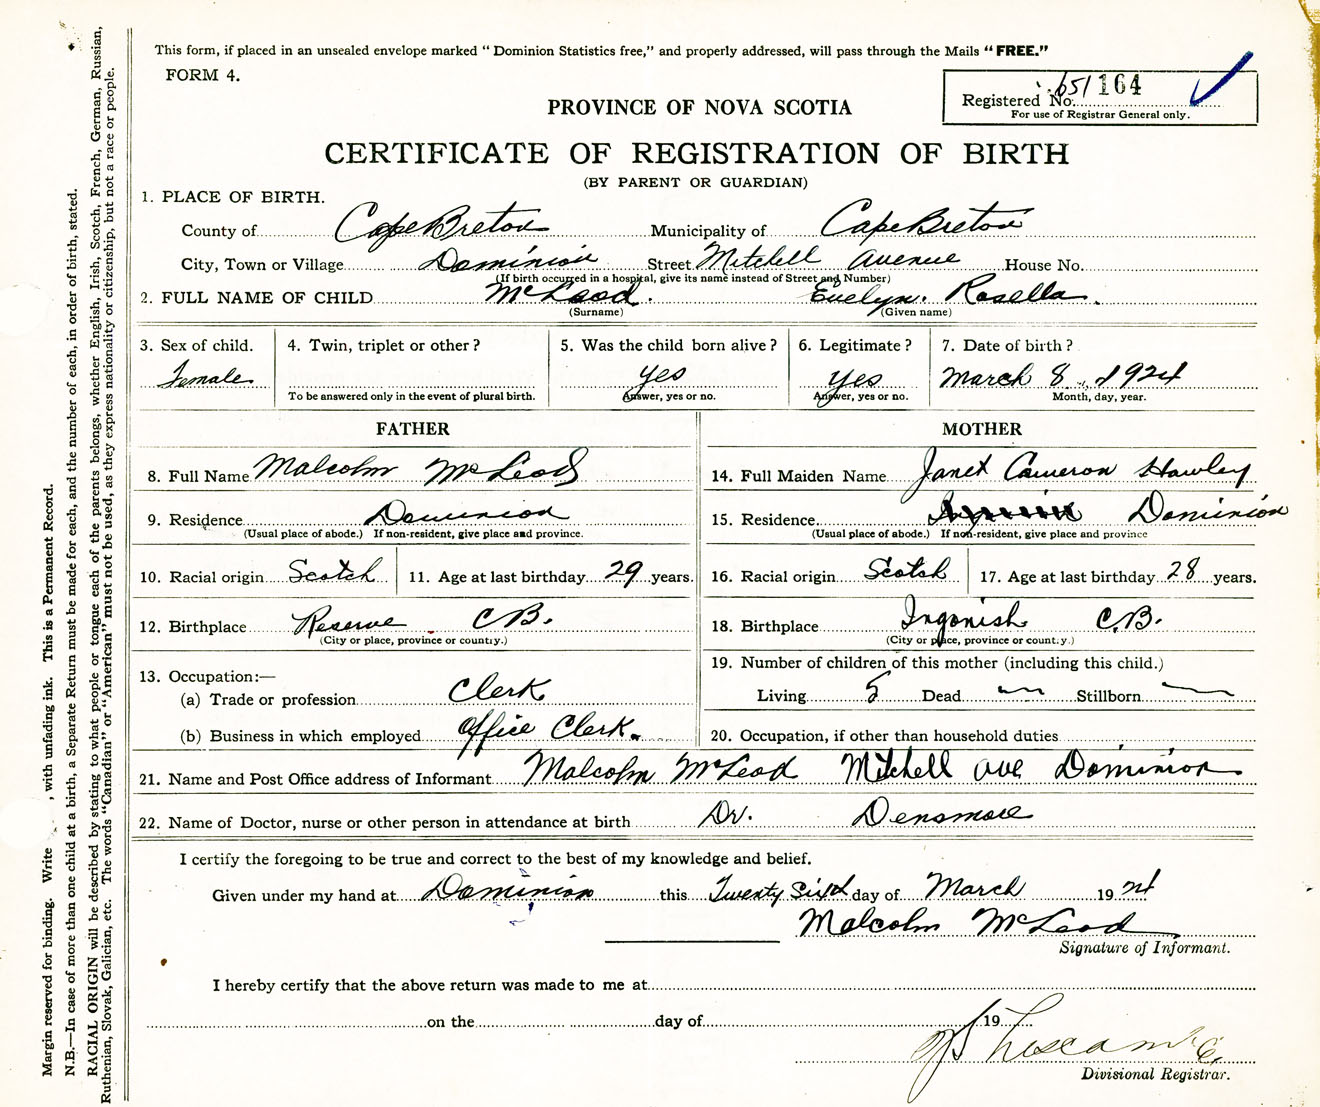 This form, if placed in an unsealed envelope marked "Dominion Statistics free," and properly addressed, will pass through the Mails "FREE."
FORM 4.
Registered No. 651 164
For use of Registrar General only.
PROVINCE OF NOVA SCOTIA
CERTIFICATE OF REGISTRATION OF BIRTH
(BY PARENT OR GUARDIAN)
1. PLACE OF BIRTH.
County of Cape Breton Municipality of Cape Breton
City, Town or Village Dominion Street Mitchell Avenue House No.
(If birth occurred in a hospital, give its name instead of Street and Number)
2. FULL NAME OF CHILD McLeod. Evelyn. Rosella.
(Surname) (Given name)
3. Sex of child. 4. Twin, triplet or other? 5. Was the child born alive? 6. Legitimate? 7. Date of birth?
Female yes yes March 8, 1924
To be answered only in the event of plural birth. Answer, yes or no. Answer, yes or no. Month, day, year.
FATHER MOTHER
8. Full Name Malcolm McLeod 14. Full Maiden Name Janet Cameron Hawley
9. Residence Dominion 15. Residence Dominion
(Usual place of abode.) If non-resident, give place and province. (Usual place of abode.) If non-resident, give place and province
10. Racial origin Scotch 11. Age at last birthday 29 years. 16. Racial origin Scotch 17. Age at last birthday 28 years.
12. Birthplace Reserve C.B. 18. Birthplace Ingonish C.B.
(City or place, province or country.) (City or place, province or country.)
13. Occupation:— 19. Number of children of this mother (including this child.)
(a) Trade or profession Clerk Living 5 Dead Stillborn
(b) Business in which employed Office Clerk. 20. Occupation, if other than household duties
21. Name and Post Office address of Informant Malcolm McLeod Mitchell Ave Dominion
22. Name of Doctor, nurse or other person in attendance at birth Dr. Densmore
I certify the foregoing to be true and correct to the best of my knowledge and belief.
Given under my hand at Dominion this Twenty Sixth day of March 1924
Malcolm McLeod
Signature of Informant.
I hereby certify that the above return was made to me at
on the day of 19
Divisional Registrar.
Margin reserved for binding. Write , with unfading ink. This is a Permanent Record.
N.B.—In case of more than one child at a birth, a Separate Return must be made for each, and the number of each, in order of birth, stated.
RACIAL ORIGIN will be described by stating to what people or tongue each of the parents belongs, whether English, Irish, Scotch, French, German, Russian,
Ruthenian, Slovak, Galician, etc. The words "Canadian" or "American" must not be used, as they express nationality or citizenship, but not a race or people.